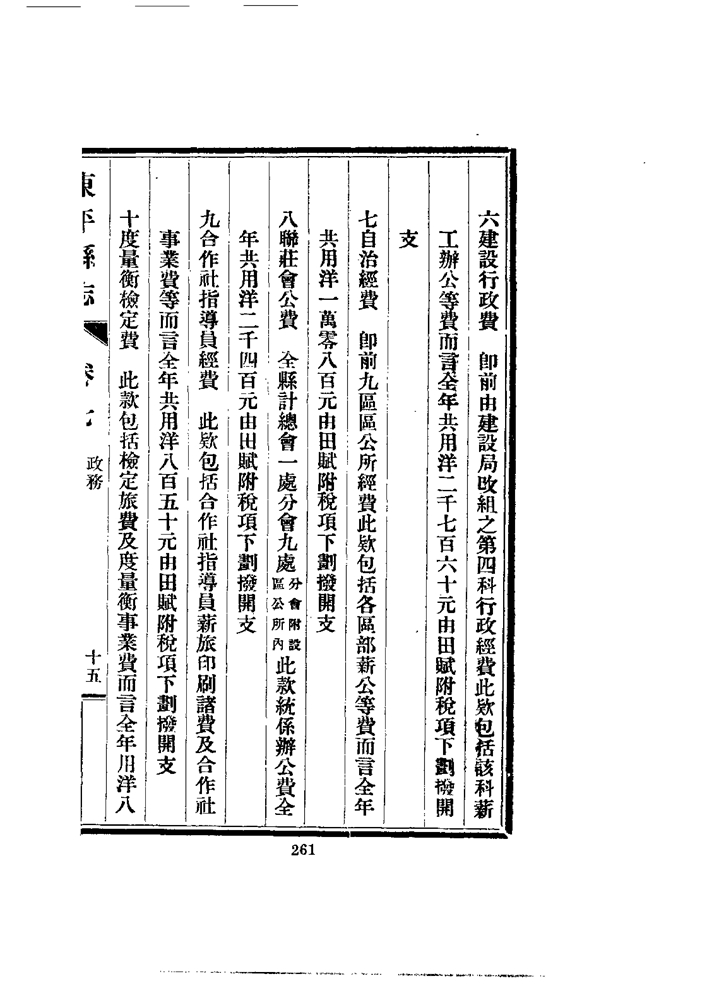 六建設行政費　卽前由建設局改組之第四科行政經費此欵包括該科薪
工辦公等費而言全年共用洋二千七百六十元由田賦附稅項下劃撥開
支
七自治經費　卽前九區區公所經費此欵包括各區部薪公等費而言全年
共用洋一萬零八百元由田賦附稅項下劃撥開支
八聯莊會公費　全縣計總會一處分會九處分會附設區公所內此款統係辦公費全
年共用洋二千四百元由田賦附稅項下劃撥開支
九合作社指導員經費　此欵包括合作社指導員薪旅印刷諸費及合作社
事業費等而言全年共用洋八百五十元由田賦附稅項下劃撥開支
十度量衡檢定費　此款包括檢定旅費及度量衡事業費而言全年用洋八
東平縣志　卷七　政務　十五
261